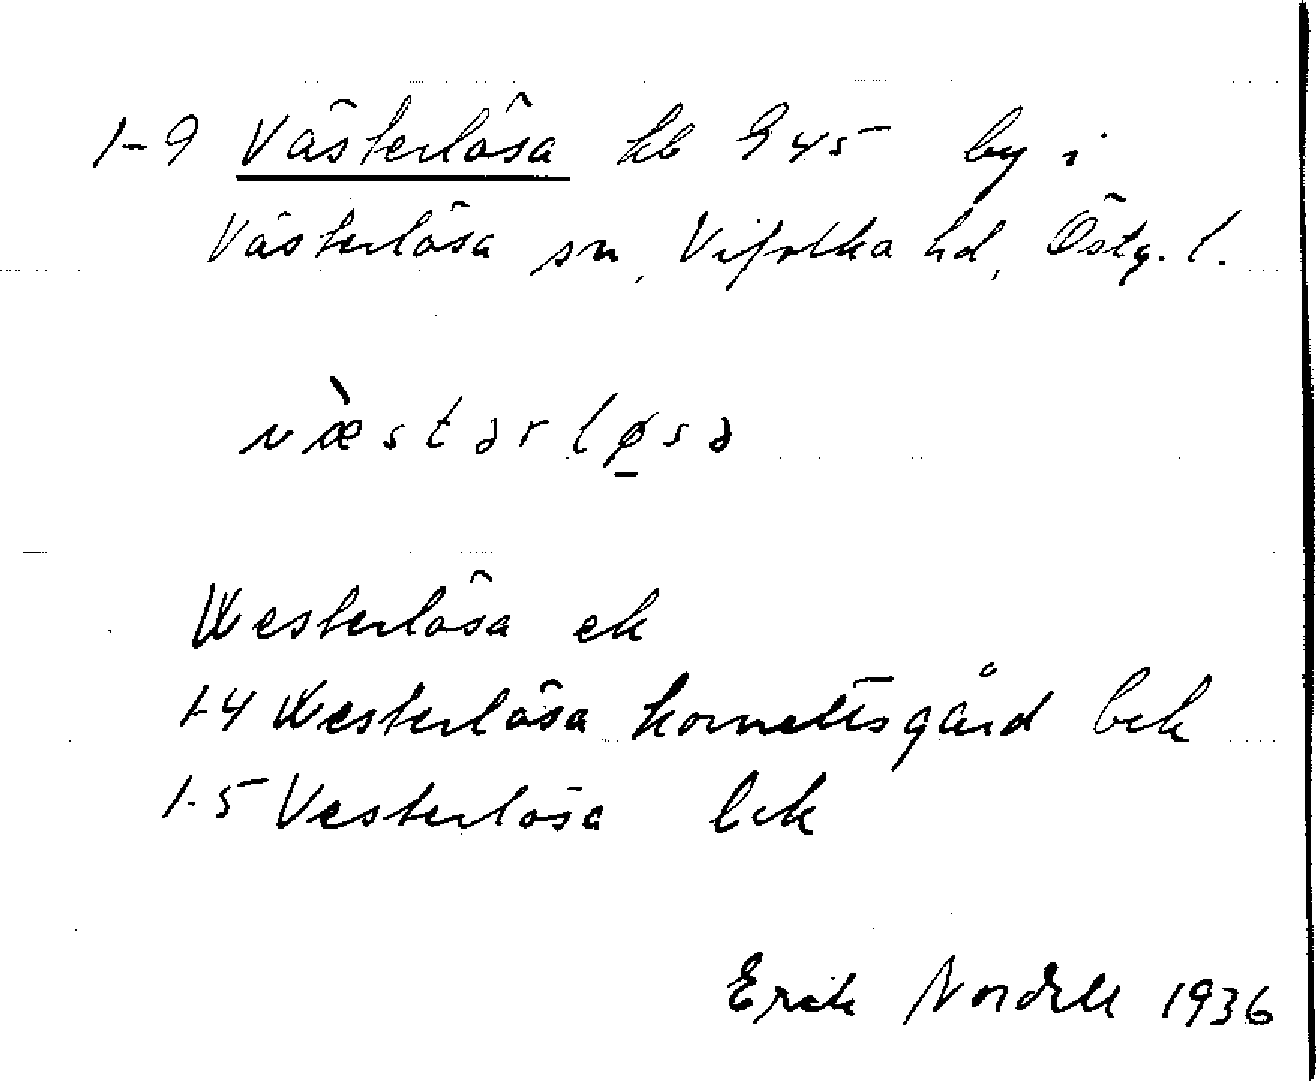 1-9 Västerlösa hb 945 by i
Västerlösa sn, Vifolka hd, Östg. l.
væ̀stərlø̱sa
Westerlösa ek
1-4 Westerlösa kornettsgård bek
1-5 Vesterlösa bek
Erik Nordell 1936